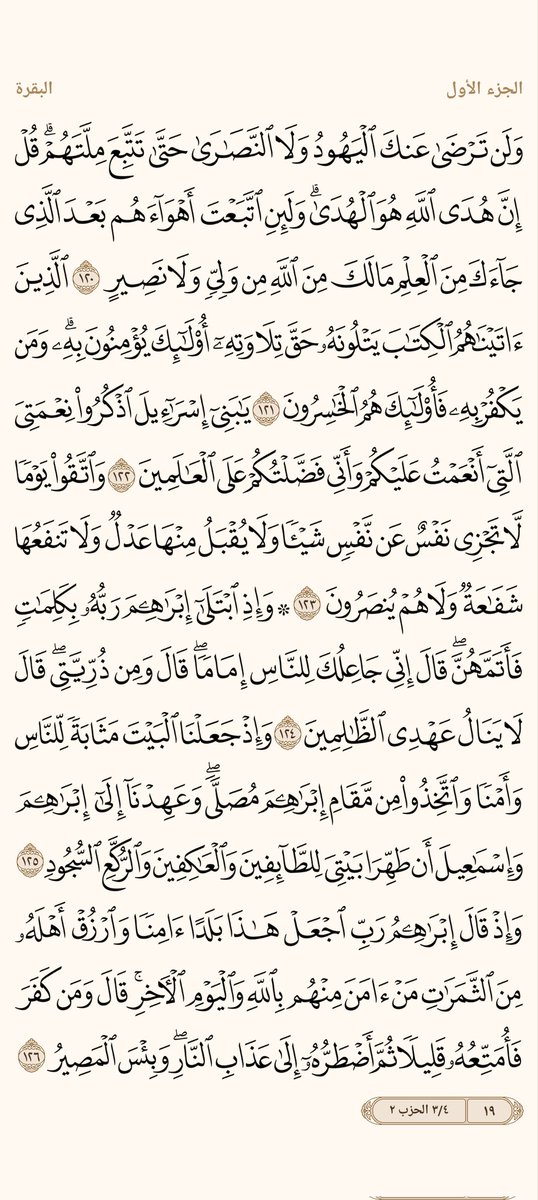 الجزء الأول
البقرة
وَلَن تَرْضَىٰ عَنكَ ٱلْيَهُودُ وَلَا ٱلنَّصَـٰرَىٰ حَتَّىٰ تَتَّبِعَ مِلَّتَهُمْ ۗ قُلْ
إِنَّ هُدَى ٱللَّهِ هُوَ ٱلْهُدَىٰ ۗ وَلَئِنِ ٱتَّبَعْتَ أَهْوَآءَهُم بَعْدَ ٱلَّذِى
جَآءَكَ مِنَ ٱلْعِلْمِ مَا لَكَ مِنَ ٱللَّهِ مِن وَلِىٍّ وَلَا نَصِيرٍ ١٢٠ ٱلَّذِينَ
ءَاتَيْنَـٰهُمُ ٱلْكِتَـٰبَ يَتْلُونَهُۥ حَقَّ تِلَاوَتِهِۦٓ أُو۟لَـٰٓئِكَ يُؤْمِنُونَ بِهِۦ ۗ وَمَن
يَكْفُرْ بِهِۦ فَأُو۟لَـٰٓئِكَ هُمُ ٱلْخَـٰسِرُونَ ١٢١ يَـٰبَنِىٓ إِسْرَٰٓءِيلَ ٱذْكُرُوا۟ نِعْمَتِىَ
ٱلَّتِىٓ أَنْعَمْتُ عَلَيْكُمْ وَأَنِّى فَضَّلْتُكُمْ عَلَى ٱلْعَـٰلَمِينَ ١٢٢ وَٱتَّقُوا۟ يَوْمًا
لَّا تَجْزِى نَفْسٌ عَن نَّفْسٍ شَيْـًٔا وَلَا يُقْبَلُ مِنْهَا عَدْلٌ وَلَا تَنفَعُهَا
شَفَـٰعَةٌ وَلَا هُمْ يُنصَرُونَ ١٢٣ * وَإِذِ ٱبْتَلَىٰٓ إِبْرَٰهِـۧمَ رَبُّهُۥ بِكَلِمَـٰتٍ
فَأَتَمَّهُنَّ ۖ قَالَ إِنِّى جَاعِلُكَ لِلنَّاسِ إِمَامًا ۖ قَالَ وَمِن ذُرِّيَّتِى ۖ قَالَ
لَا يَنَالُ عَهْدِى ٱلظَّـٰلِمِينَ ١٢٤ وَإِذْ جَعَلْنَا ٱلْبَيْتَ مَثَابَةً لِّلنَّاسِ
وَأَمْنًا وَٱتَّخِذُوا۟ مِن مَّقَامِ إِبْرَٰهِـۧمَ مُصَلًّى ۖ وَعَهِدْنَآ إِلَىٰٓ إِبْرَٰهِـۧمَ
وَإِسْمَـٰعِيلَ أَن طَهِّرَا بَيْتِىَ لِلطَّآئِفِينَ وَٱلْعَـٰكِفِينَ وَٱلرُّكَّعِ ٱلسُّجُودِ ١٢٥
وَإِذْ قَالَ إِبْرَٰهِـۧمُ رَبِّ ٱجْعَلْ هَـٰذَا بَلَدًا ءَامِنًا وَٱرْزُقْ أَهْلَهُۥ
مِنَ ٱلثَّمَرَٰتِ مَنْ ءَامَنَ مِنْهُم بِٱللَّهِ وَٱلْيَوْمِ ٱلْـَٔاخِرِ ۖ قَالَ وَمَن كَفَرَ
فَأُمَتِّعُهُۥ قَلِيلًا ثُمَّ أَضْطَرُّهُۥٓ إِلَىٰ عَذَابِ ٱلنَّارِ ۖ وَبِئْسَ ٱلْمَصِيرُ ١٢٦
١٩
٣/٤ الحزب ٢